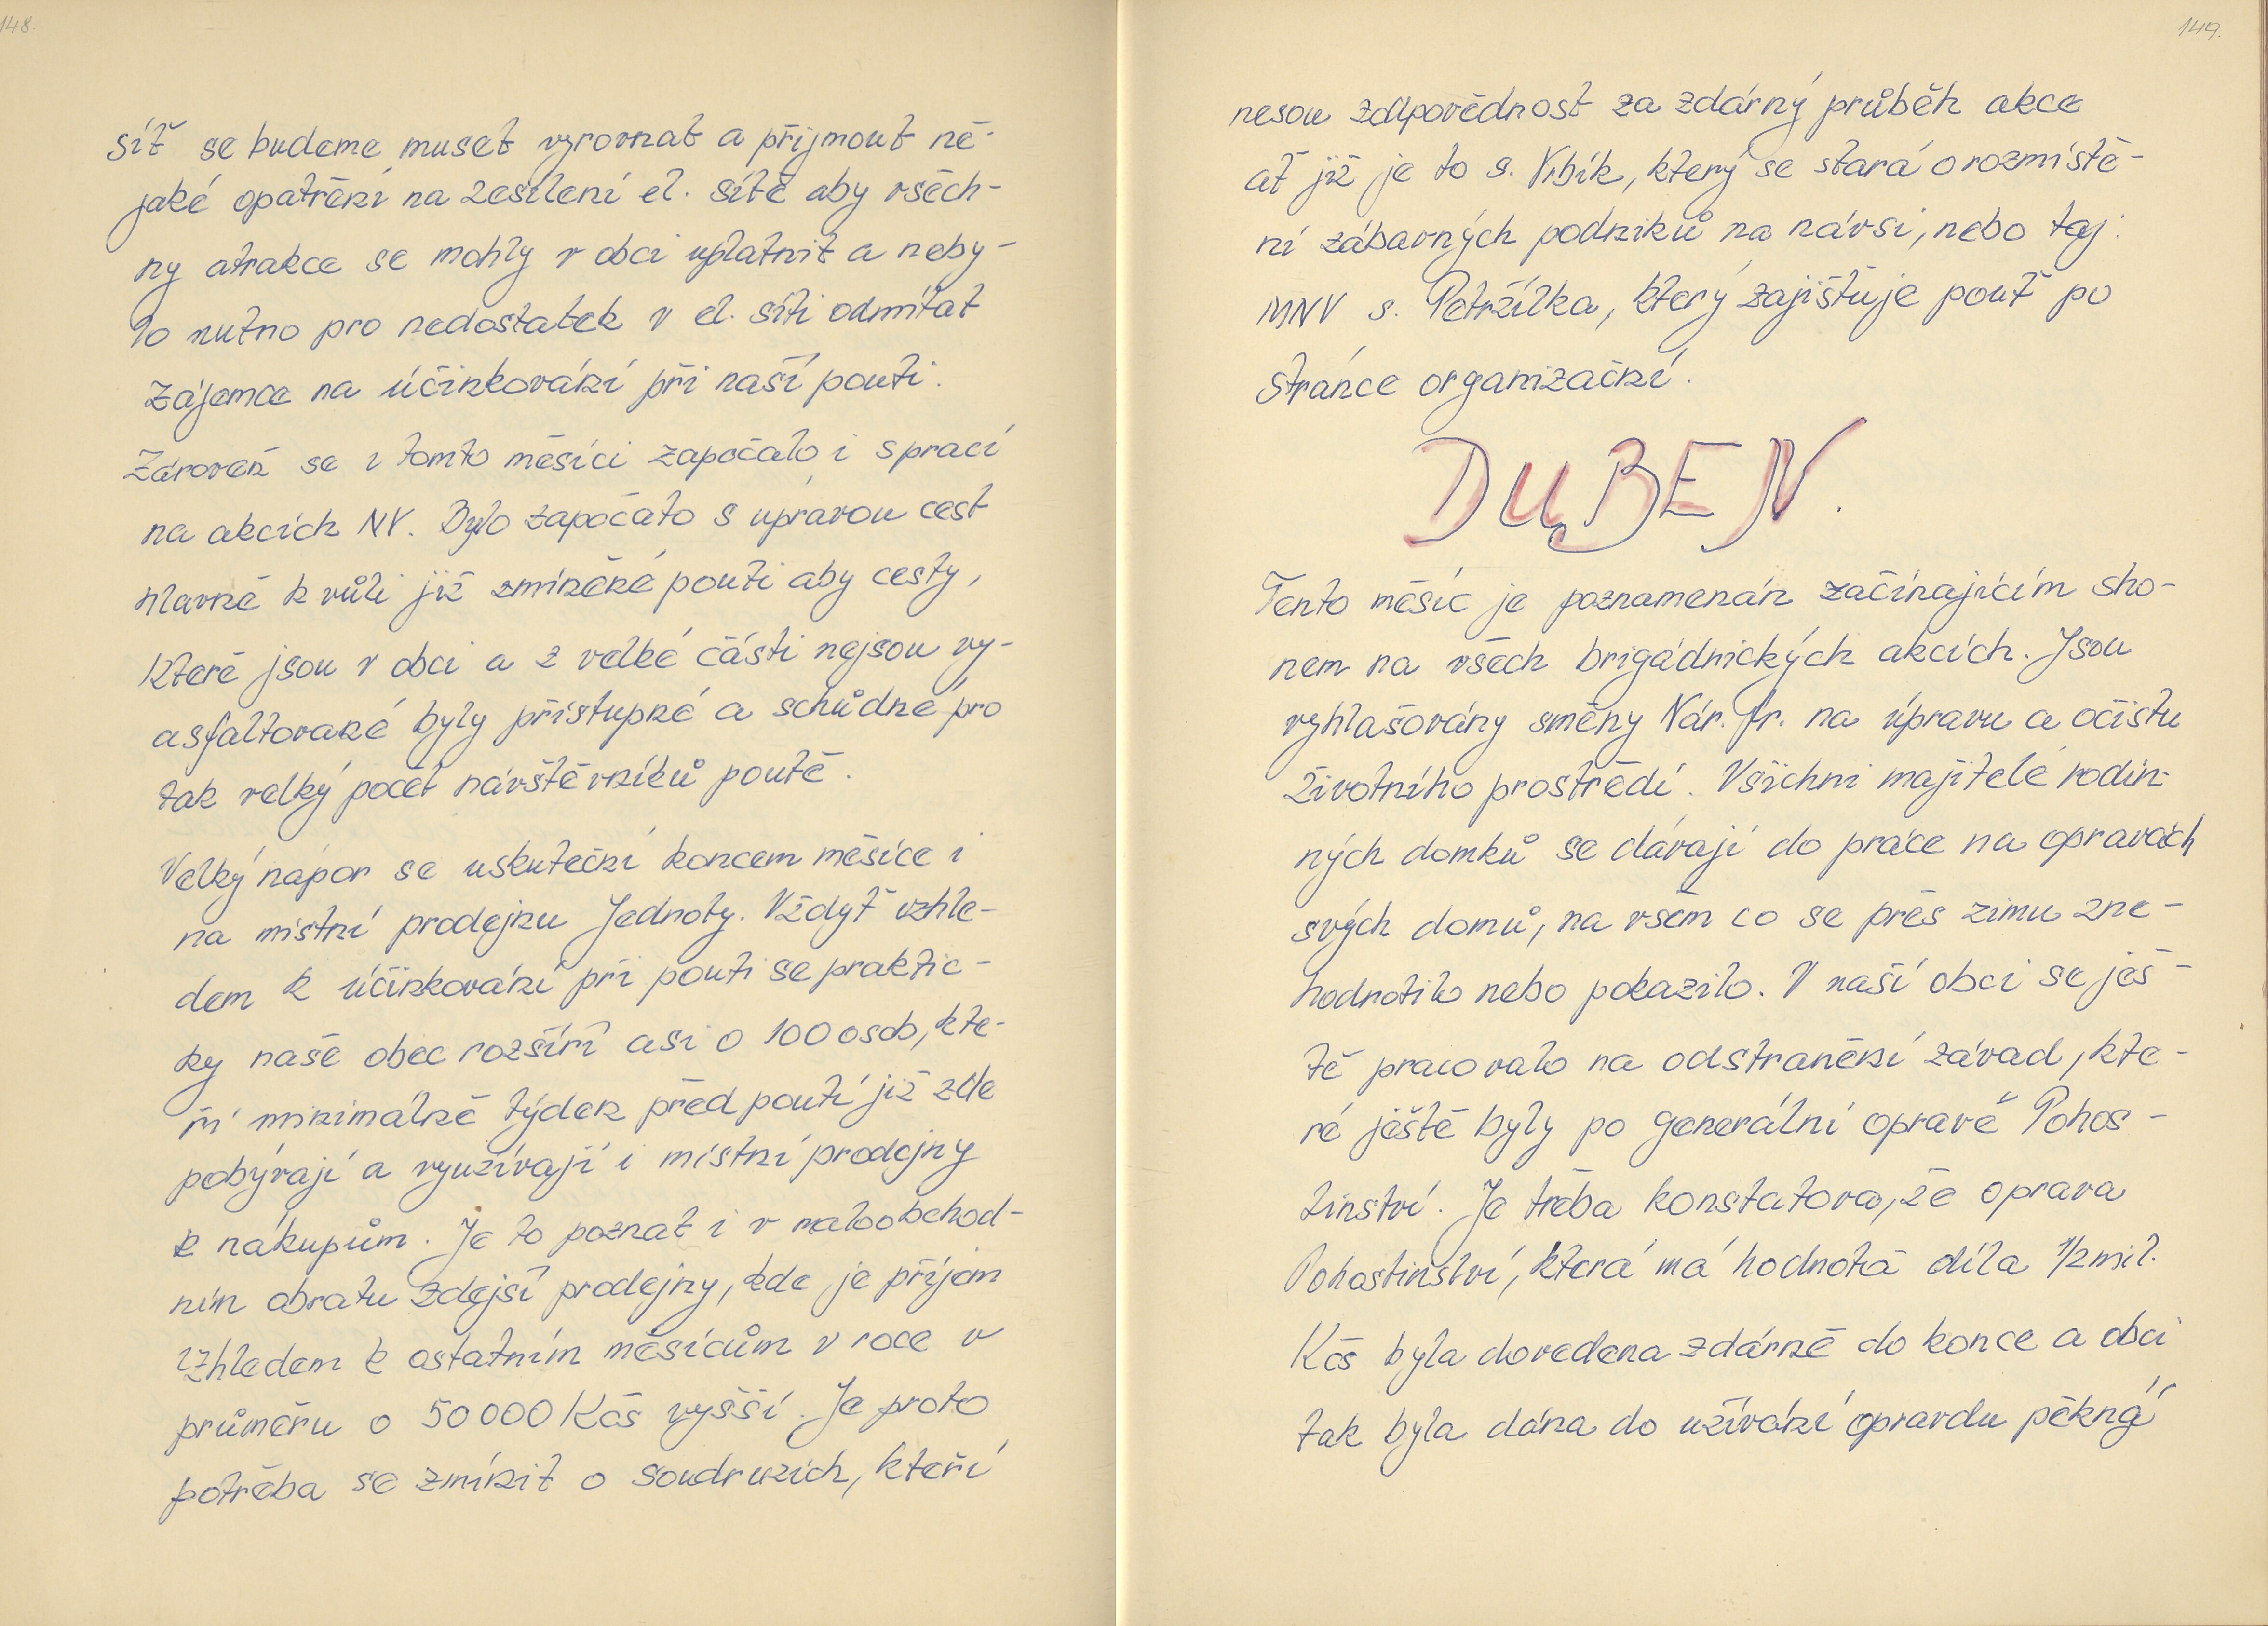 148.
síť se budeme muset vyrovnat a přijmout ně-
jaké opatření na zesílení el. sítě aby všech-
ny atrakce se mohly v obci uplatnit a neby-
lo nutno pro nedostatek v el. síti odmítat
zájemce na účinkování při naší pouti.
Zároveň se v tomto měsíci započalo i s prací
na akcích NV. Bylo započato s úpravou cest
hlavně k vůli již zmíněné pouti aby cesty,
které jsou v obci a z velké části nejsou vy-
asfaltované byly přístupné a schůdné pro
tak velký počet návštěvníků poutě.
Velký nápor se uskuteční koncem měsíce i
na místní prodejnu Jednoty. Vždyť vzhle-
dem k účinkování při pouti se praktic-
ky naše obec rozšíří asi o 100 osob, kte-
ří minimálně týden před poutí již zde
pobývají a využívají i místní prodejny
k nákupům. Je to poznat i v maloobchod-
ním obratu zdejší prodejny, kde je příjem
vzhledem k ostatním měsícům v roce v
průměru o 50 000 Kčs vyšší. Je proto
potřeba se zmínit o soudruzích, kteří
149.
nesou zodpovědnost za zdárný průběh akce
ať již je to s. Vrbík, který se stará o rozmístě-
ní zábavných podniků na návsi, nebo taj.
MNV s. Petržílka, který zajišťuje pouť po
stránce organizační.
DUBEN.
Tento měsíc je poznamenán začínajícím sho-
nem na všech brigádnických akcích. Jsou
vyhlašovány směny Nár. fr. na úpravu a očistu
životního prostředí. Všichni majitelé rodin-
ných domků se dávají do práce na opravách
svých domů, na všem co se přes zimu zne-
hodnotilo nebo pokazilo. V naší obci se ješ-
tě pracovalo na odstranění závad, kte-
ré ještě byly po generální opravě Pohos-
tinství. Je třeba konstatova, že oprava
Pohostinství, která má hodnotá díla 1/2 mil.
Kčs byla dovedena zdárně do konce a obci
tak byla dána do užívání opravdu pěkná